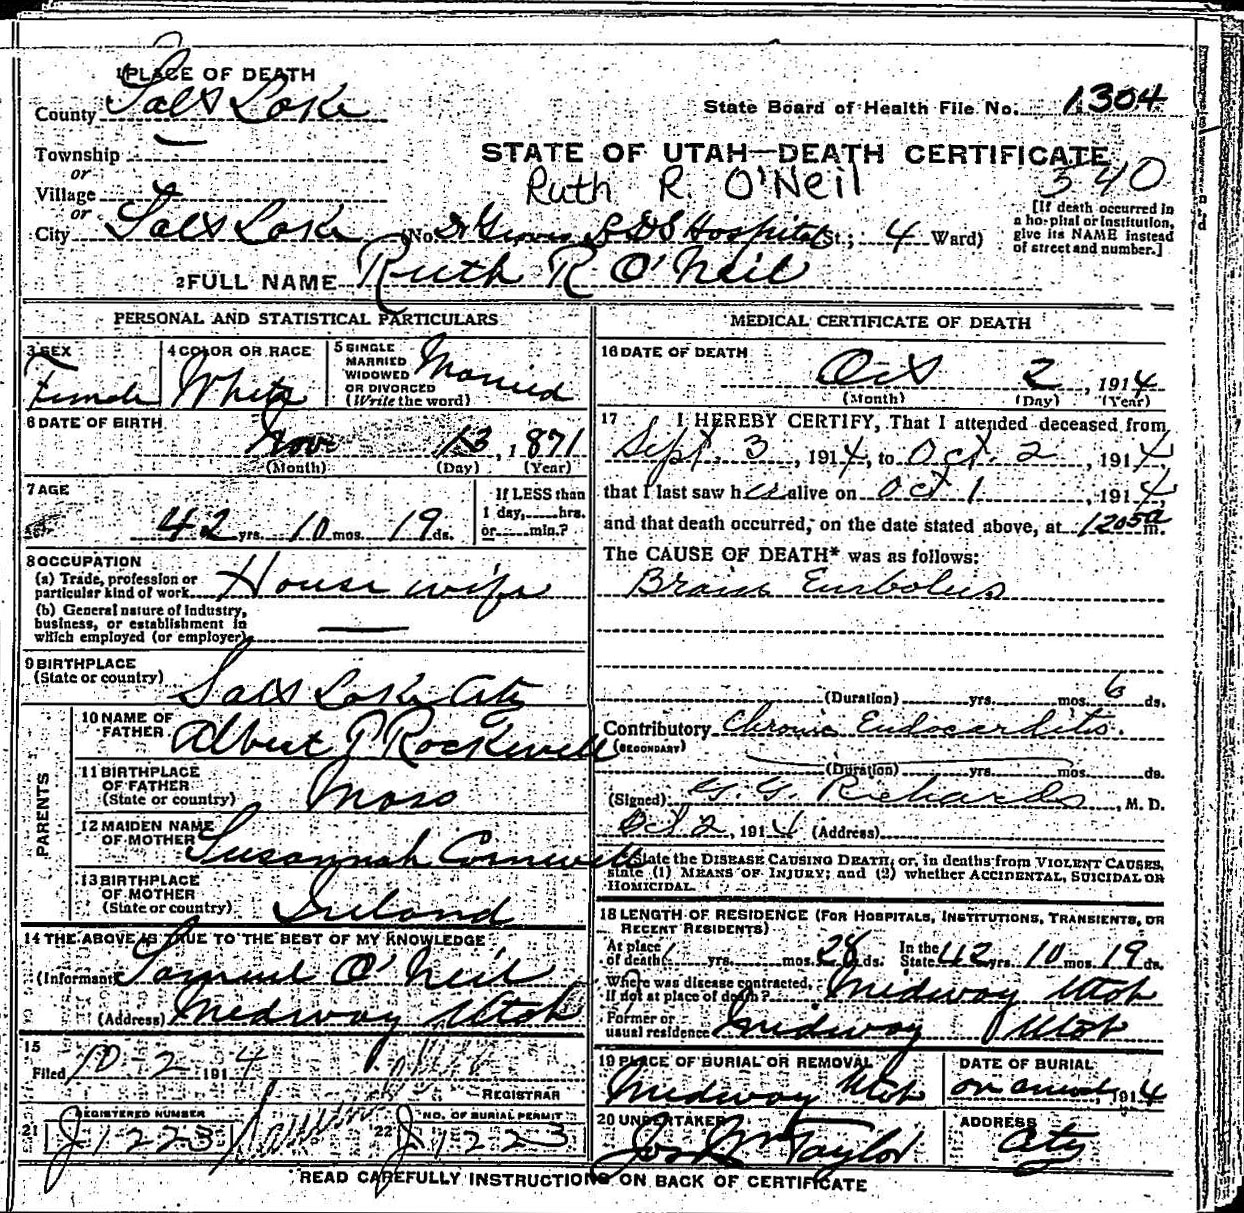 1 PLACE OF DEATH
County Salt Lake
State Board of Health File No. 1304
Township
or
Village
or
City Salt Lake
STATE OF UTAH—DEATH CERTIFICATE
Ruth R. O'Neil
340
(No. L D S Hospital St.; 4 Ward)
[If death occurred in
a hospital or institution,
give its NAME instead
of street and number.]
2 FULL NAME Ruth R O'Neil
PERSONAL AND STATISTICAL PARTICULARS
3 SEX
Female
4 COLOR OR RACE
White
5 SINGLE
MARRIED
WIDOWED
OR DIVORCED
(Write the word)
Married
6 DATE OF BIRTH
Nov 13, 1871
(Month) (Day) (Year)
7 AGE
42 yrs. 10 mos. 19 ds.
If LESS than
1 day, hrs.
or min.?
8 OCCUPATION
(a) Trade, profession or
particular kind of work House wife
(b) General nature of industry,
business, or establishment in
which employed (or employer)
9 BIRTHPLACE
(State or country)
Salt Lake City
PARENTS
10 NAME OF
FATHER
Albert P Rockwell
11 BIRTHPLACE
OF FATHER
(State or country)
Mass
12 MAIDEN NAME
OF MOTHER
Susannah Cornwell
13 BIRTHPLACE
OF MOTHER
(State or country)
Ireland
14 THE ABOVE IS TRUE TO THE BEST OF MY KNOWLEDGE
(Informant) Samuel O'Neil
(Address) Medway Utah
15
Filed 10-2 1914
REGISTRAR
REGISTERED NUMBER
21 J1223
NO. OF BURIAL PERMIT
22 J1223
MEDICAL CERTIFICATE OF DEATH
16 DATE OF DEATH
Oct 2, 1914
(Month) (Day) (Year)
17 I HEREBY CERTIFY, That I attended deceased from
Sept. 3, 1914, to Oct. 2, 1914,
that I last saw her alive on Oct 1, 1914,
and that death occurred, on the date stated above, at 1205a m.
The CAUSE OF DEATH* was as follows:
Brain Embolus
(Duration) yrs. mos. 6 ds.
Contributory Chronic Endocarditis.
(SECONDARY)
(Duration) yrs. mos. ds.
(Signed) G. G. Richards, M. D.
Oct 2, 1914 (Address)
State the DISEASE CAUSING DEATH; or, in deaths from VIOLENT CAUSES,
state (1) MEANS OF INJURY; and (2) whether ACCIDENTAL, SUICIDAL OR
HOMICIDAL.
18 LENGTH OF RESIDENCE (FOR HOSPITALS, INSTITUTIONS, TRANSIENTS, OR
RECENT RESIDENTS)
At place
of death yrs. mos. 28 ds.
In the
State 42 yrs. 10 mos. 19 ds.
Where was disease contracted,
If not at place of death? Midway Utah
Former or
usual residence Midway Utah
19 PLACE OF BURIAL OR REMOVAL
Midway Utah
DATE OF BURIAL
on arrival, 1914
20 UNDERTAKER
Jos Wm Taylor
ADDRESS
City
READ CAREFULLY INSTRUCTIONS ON BACK OF CERTIFICATE